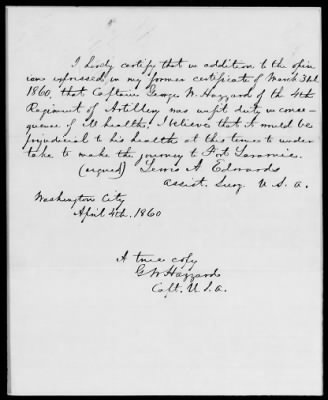 I hereby certify that in addition to the opin
ions expressed in my former certificate of March 31st
1860, that Captain George W. Hazzard of the 4th
Regiment of Artillery was unfit duty in conse-
quence of ill health, I believe that it would be
prejudicial to his health at this time to under
take to make the journey to Fort Laramie.
(signed) Lewis A Edwards
Assist. Surg. U. S. A.
Washington City
April 4th. 1860
A true copy
G W Hazzard
Capt. U. S. A.